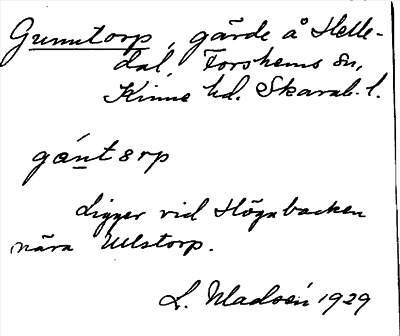 Gunntorp, gärde å Helle-
dal, Forshems sn,
Kinne hd. Skarab. l.
Ligger vid Högabacken
nära Ulstorp.
L. 1929